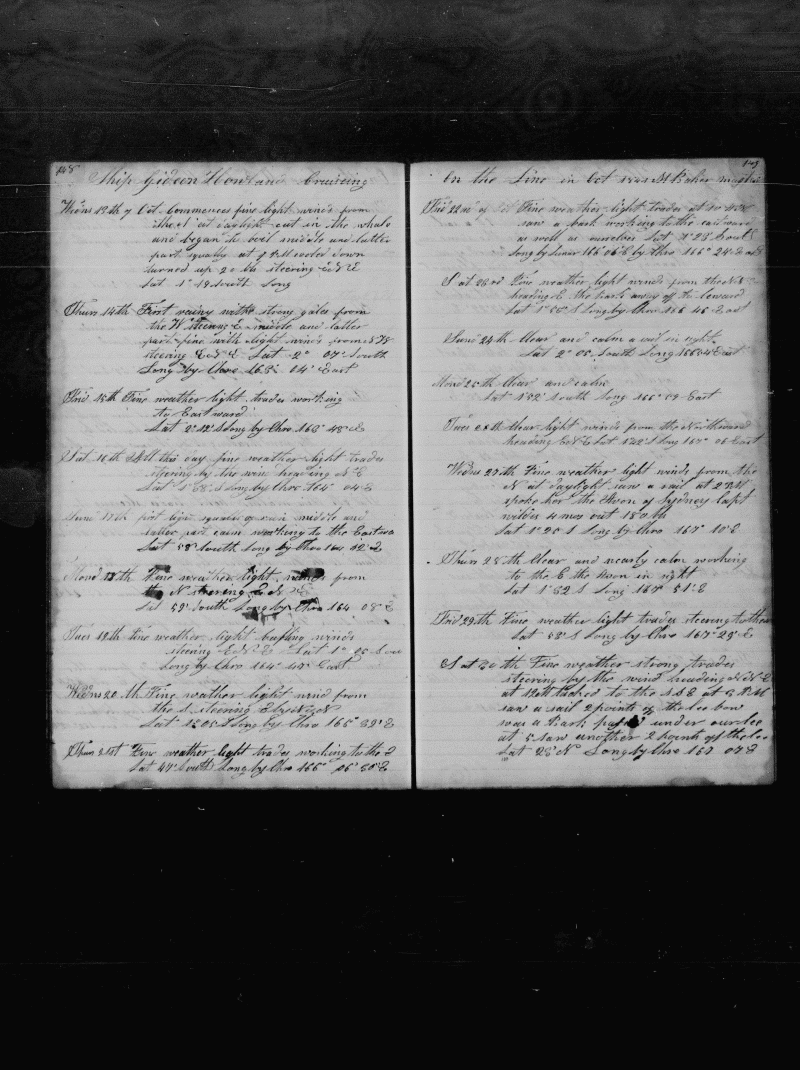 148
Ship Gideon Howland Cruising
Wedns 13th of Oct Commences fine light winds from
the at daylight cut in the whale
and began to boil middle and latter
part squally at 9 PM cooled down
turned up steering ENE
Lat 1° 19 South Long
Thurs 14th First rainy with strong gales from
the W steering E middle and latter
part fine with light winds from NW
steering ENE Lat 2° 07' South
Long by Chro 04' East
Frid 15th Fine weather light trades working
to Eastward
Lat 2° 12' S Long by Chro 163° 48' E
Sat 16th this day fine weather light trades
steering by the wind heading NE
Lat 1° S Long by Chro 164° 04 E
Sund 17th first light squalls of rain middle and
latter part calm working to the Eastward
Lat 58' South Long by Chro 164 12' E
Mond 18th Fine weather light winds from
the N steering ENE
Lat 59' South Long by Chro 164 08' E
Tues 19th fine weather light bafling winds
steering ENE Lat 1° 05 S
Long by Chro 164° 47' East
Wedns 20th Fine weather light wind from
the steering
Lat 1° 05 S Long by Chro 165° 39' E
Thurs 21st Fine weather light trades working to the E
Lat 47' South Long by Chro 166° 06' 30" E
149
On the Line in Oct 1841 M Baker master
Frid 22nd of Fine weather light trades at
saw a bark working to the eastward
as well as ourselves Lat 1° 23' South
Long by Lunar 06' E by Chro 166° 24' E
Sat 23rd Fine weather light winds from the NE
heading E the bark away off to leeward
Lat 1° S Long by Chro 166 46 East
Sund 24th Clear and calm a sail in sight
Lat 2° 05 South Long 166 54 East
Mond 25th Clear and calm
Lat 1° 52' South Long 166° 59 East
Tues 26th Clear light winds from the Northward
heading ENE Lat 1° 42' S Long 167° 06 East
Wedns 27th Fine weather light winds from the
N at daylight saw a sail at 2 PM
spoke her the Avon of Sydney Capt
wilds 4 mos out 180 bb
Lat 1° 25 S Long by Chro 167° 10' E
Thurs 28th Clear and nearly calm working
to the E the Avon in sight
Lat 1° 32 S Long 167° 51' E
Frid 29th Fine weather light trades steering to the
Lat 58' S Long by Chro 167° 28' E
Sat 30th Fine weather strong trades
steering by the wind heading NNE
at 12 M tacked to the SSE at 3 PM
saw a sail 2 points of the lee bow
was a Bark passed under our lee
at 5 saw another 2 points off the lee
Lat 28' N Long by Chro 04' E